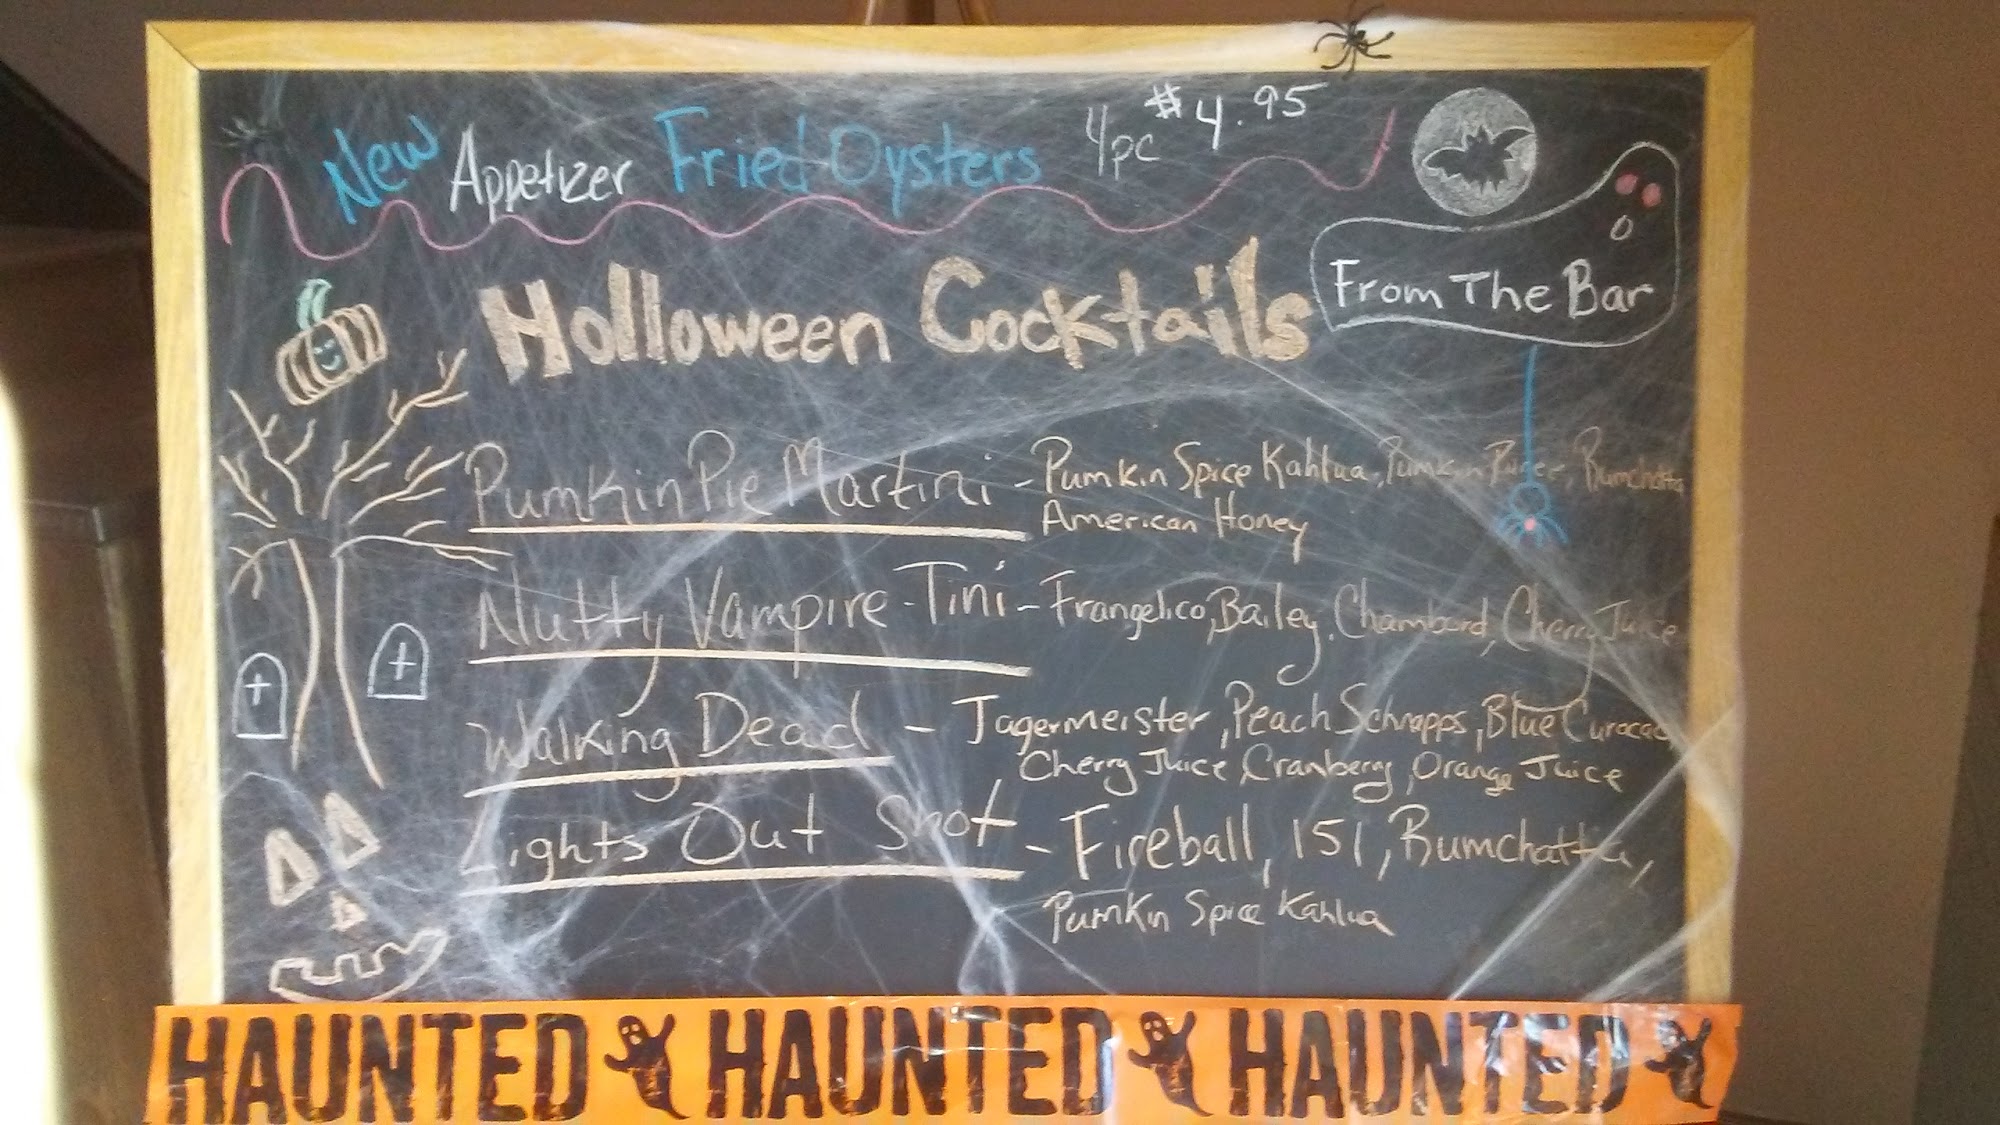 New Appetizer Fried Oysters 4pc $4.95
Holloween Cocktails
From The Bar
Pumkin Pie Martini - Pumkin Spice Kahlua, Pumkin Puree, Rumchatta
American Honey
Nutty Vampire-Tini - Frangelico, Bailey, Chambord, Cherry Juice
Walking Dead - Jagermeister, Peach Schnapps, Blue Curacao,
Cherry Juice, Cranberry, Orange Juice
Lights Out Shot - Fireball, 151, Rumchatta,
Pumkin Spice Kahlua
HAUNTED HAUNTED HAUNTED